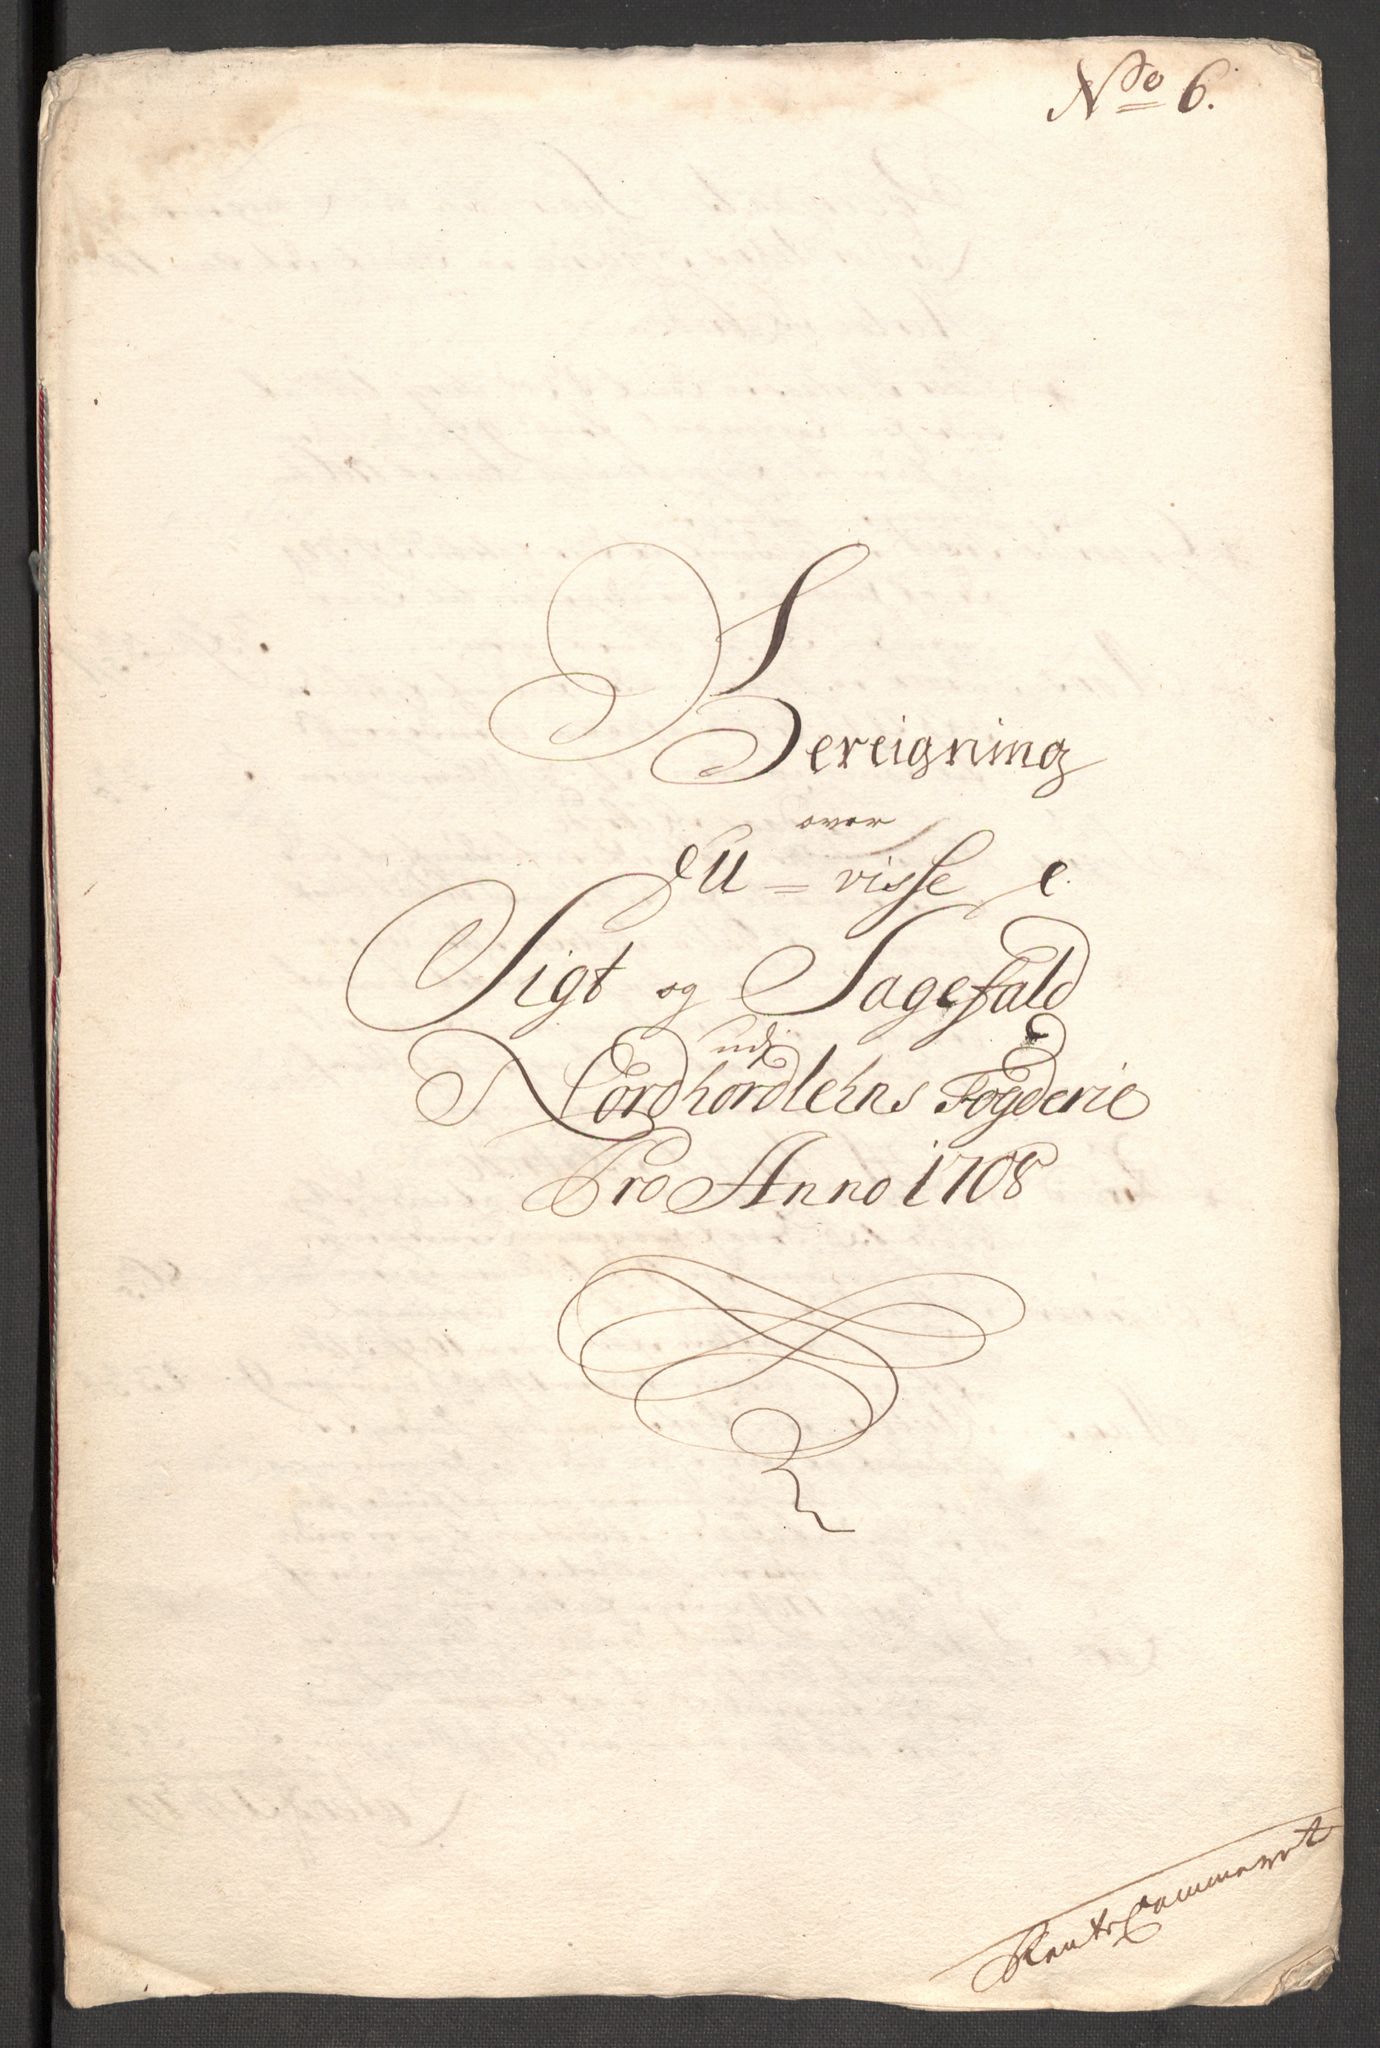 No 6.
Bereigning
over
U=visse
Sigt og Sagefald
udj
Nordhordlehns Fogderie
Pro Anno 1708
RenteCammeret